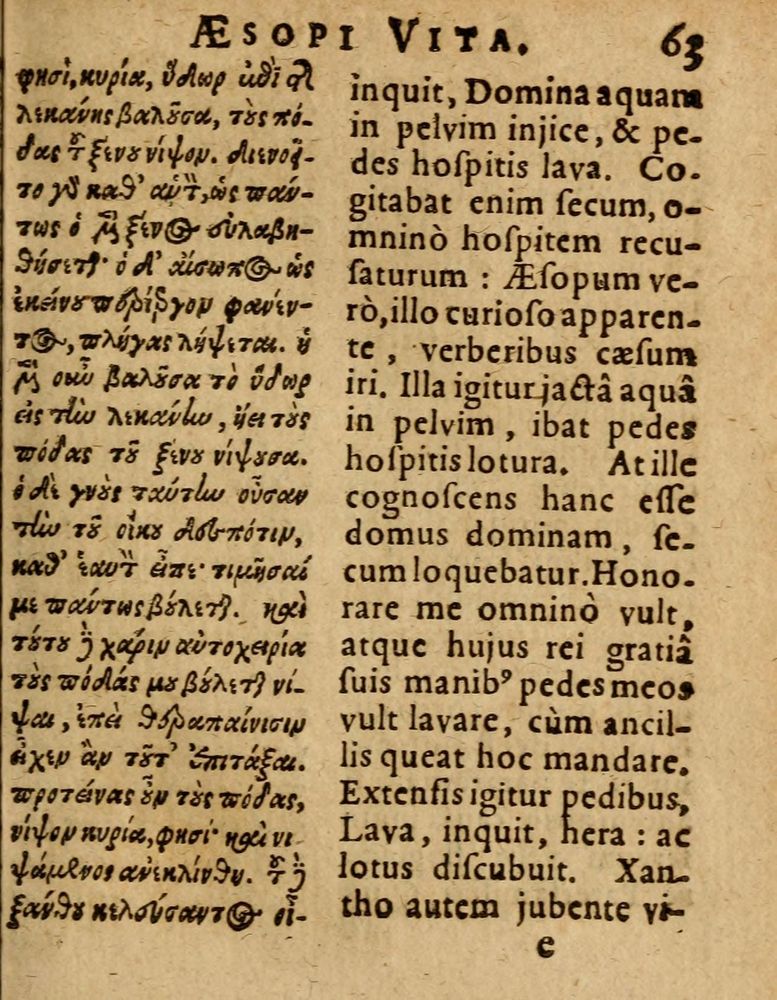 ÆSOPI VITA. 63
φησὶ, κυρία, ὕδωρ καθὶ τῆ
λεκάνης βαλοῦσα, τοὺς πό-
δας τοῦ ξένου νίψον. διενοεῖ-
το γδ καθ' αὑτὸν, ὡς πάν-
τως ὁ μὲν ξένος εὐλαβη-
θήσεται· ὁ δ' αἴσωπος ὡς
ἐκείνου περιέργου φανέν-
τος, πληγὰς λήψεται. ἡ
μὲν οὖν βαλοῦσα τὸ ὕδωρ
εἰς τὴν λεκάνην, ᾔει τοὺς
πόδας τοῦ ξένου νίψουσα.
ὁ δὲ γνοὺς ταύτην οὖσαν
τὴν τοῦ οἴκου δεσπότιν,
καθ' ἑαυτὸν εἶπε· τιμῆσαί
με πάντως βούλεται. καὶ
τούτου δὲ χάριν αὐτοχειρία
τοὺς πόδάς μου βούλεται νί-
ψαι, ἐπεὶ θεραπαίνισιν
εἶχεν ἂν τοῦτ' ἐπιτάξαι.
προτείνας οὖν τοὺς πόδας,
νίψον κυρία, φησί· καὶ νι
ψάμενος ἀνεκλίνθη. τοῦ δὲ
ξάνθου κελεύσαντος οἶ-
inquit, Domina aquam
in pelvim injice, & pe-
des hoſpitis lava. Co-
gitabat enim ſecum, o-
mninò hoſpitem recu-
ſaturum : Æſopum ve-
rò, illo curioſo apparen-
te , verberibus cæſum
iri. Illa igitur jactâ aquâ
in pelvim , ibat pedes
hoſpitis lotura. At ille
cognoſcens hanc eſſe
domus dominam , ſe-
cum loquebatur. Hono-
rare me omninò vult,
atque hujus rei gratiâ
ſuis manib⁹ pedes meos
vult lavare, cùm ancil-
lis queat hoc mandare.
Extenſis igitur pedibus,
Lava, inquit, hera : ac
lotus diſcubuit. Xan-
tho autem jubente vi-
e